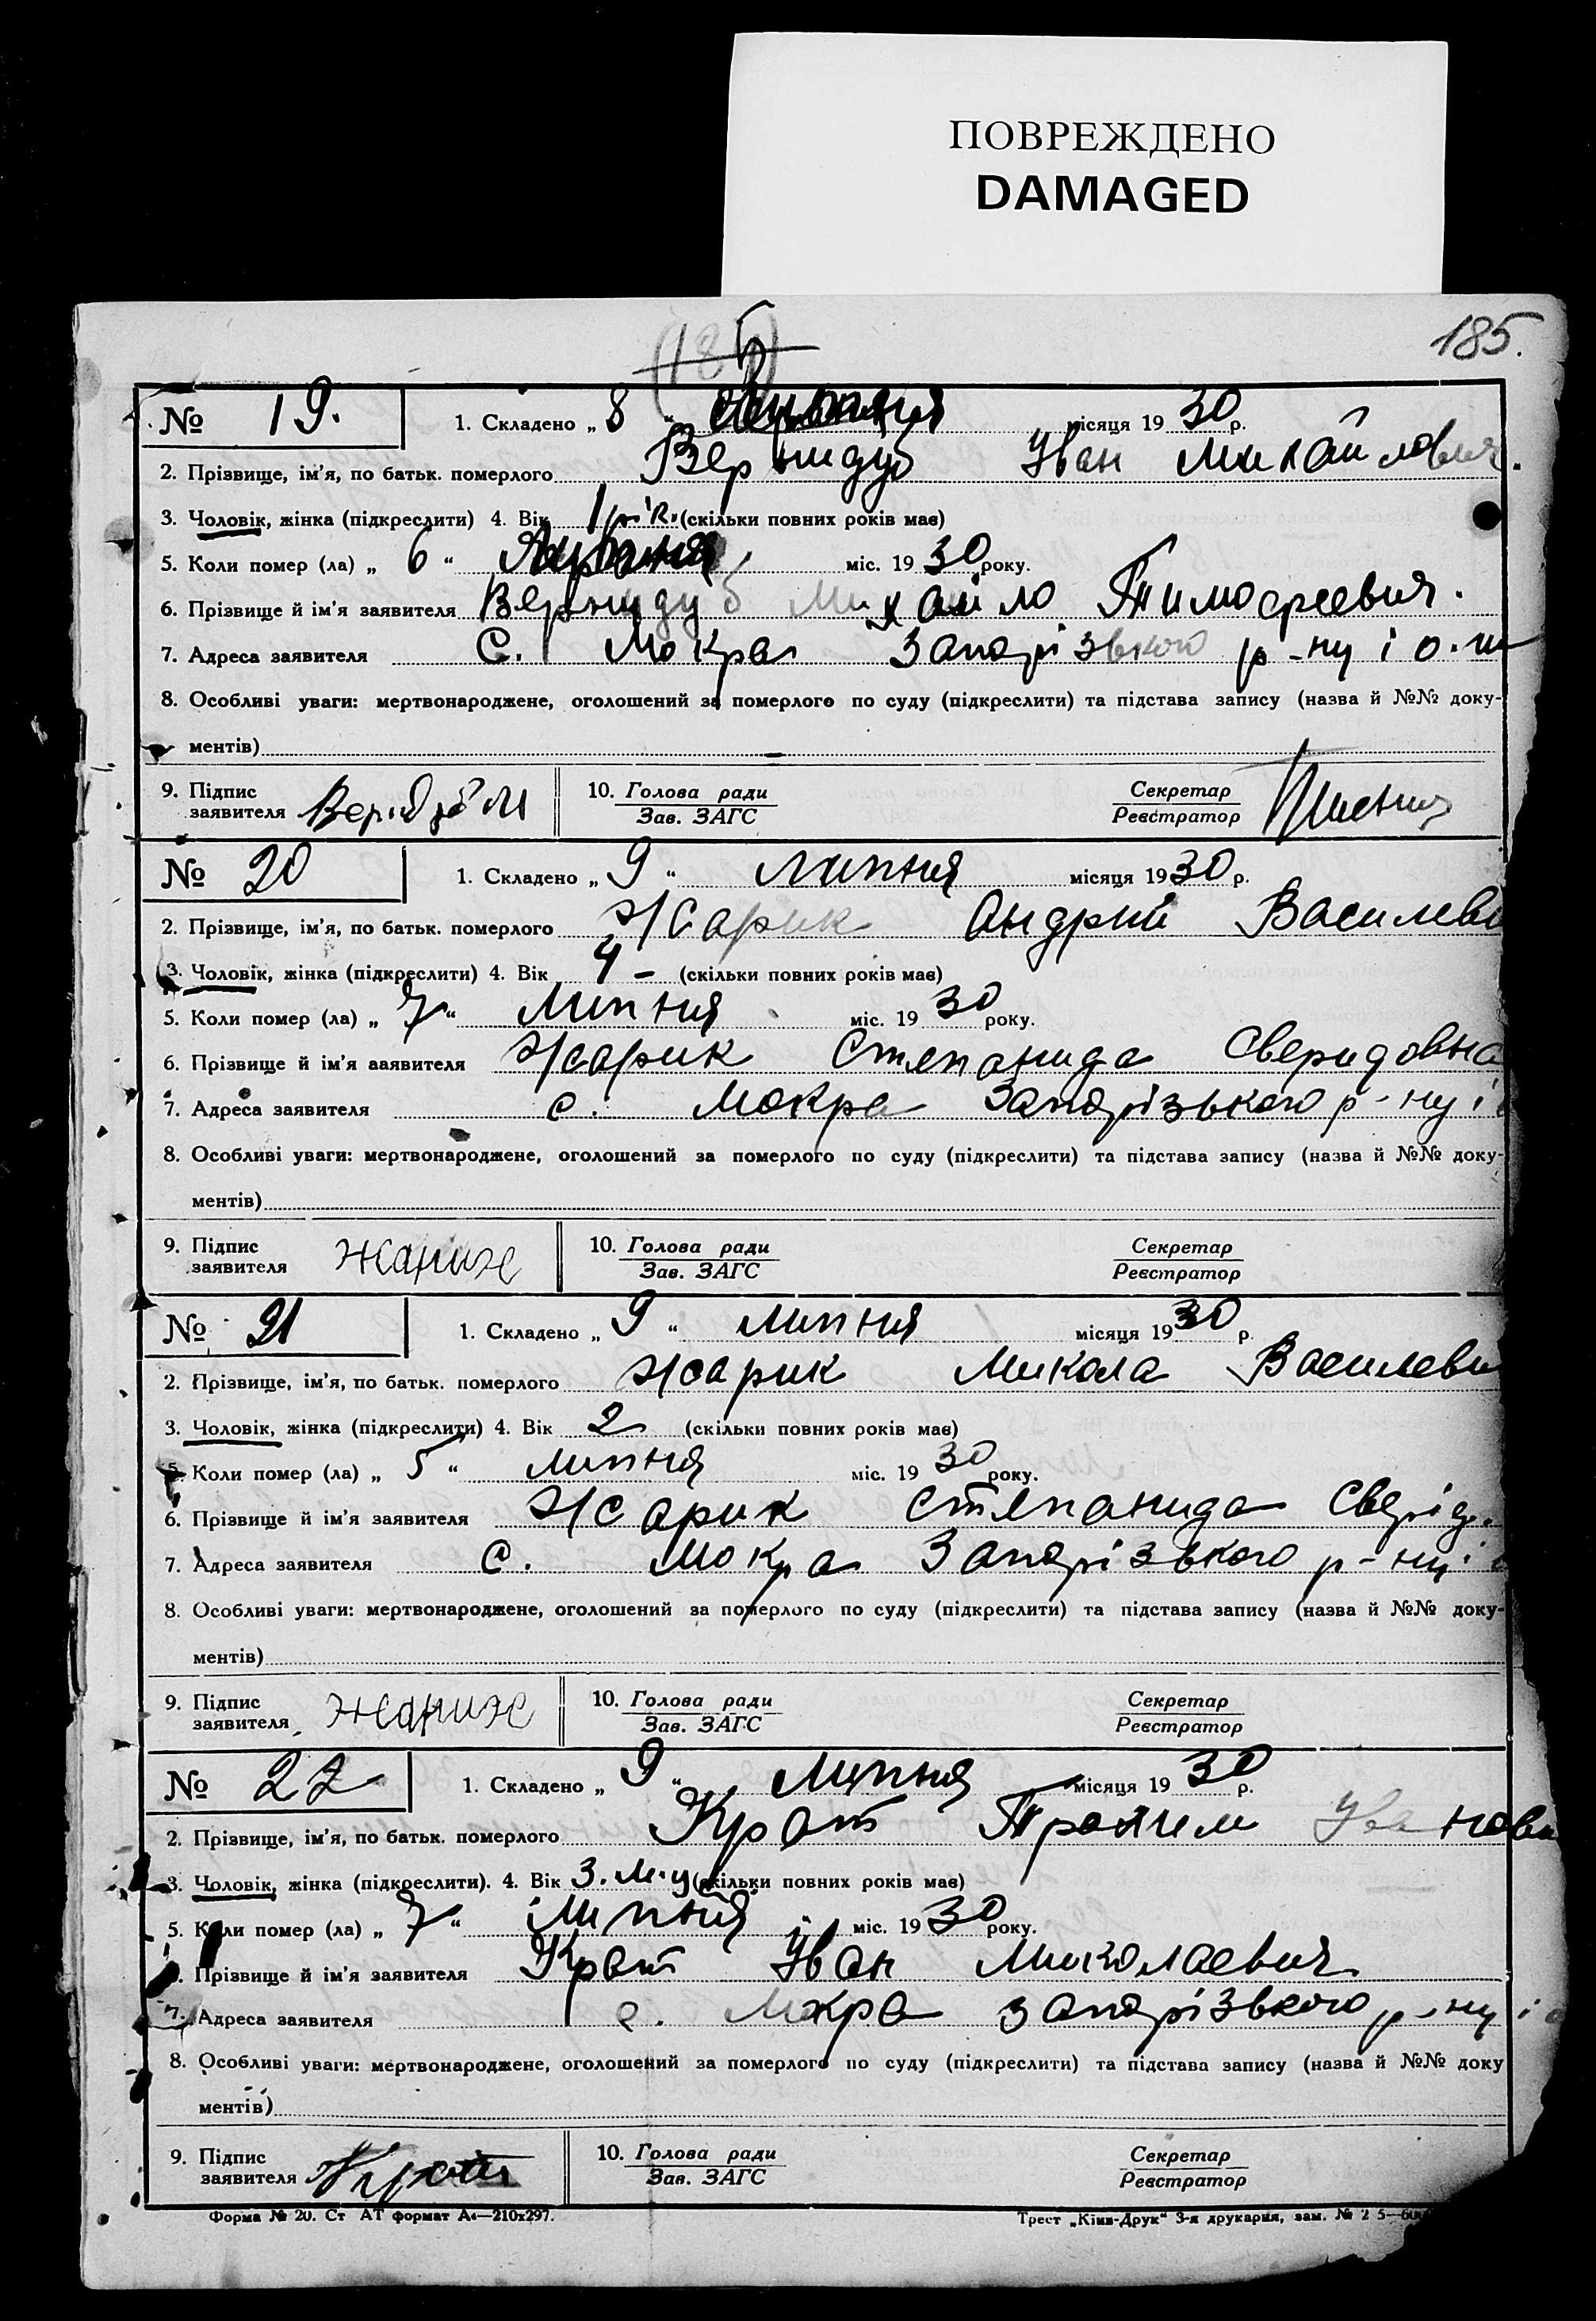 ПОВРЕЖДЕНО
DAMAGED
185.
№ 19. 1. Складено „ 8 “ місяця 19 30 р.
2. Прізвище, ім’я, по батьк. померлого Вернидуб Иван Михайлович.
3. Чоловік, жінка (підкреслити) 4. Вік 1 рік. (скільки повних років має)
5. Коли помер (ла) „ 6 “ міс. 19 30 року.
6. Прізвище й ім’я заявителя Вернидуб Михайло Тимофеевич.
7. Адреса заявителя С. Мокра Запорізького р-ну і о.
8. Особливі уваги: мертвонароджене, оголошений за померлого по суду (підкреслити) та підстава запису (назва й №№ доку-
ментів)
9. Підпис заявителя 10. Голова ради Зав. ЗАГС Секретар Реєстратор
№ 20 1. Складено „ 9 “ Липня місяця 19 30 р.
2. Прізвище, ім’я, по батьк. померлого Жарик Андрій Василеви
3. Чоловік, жінка (підкреслити) 4. Вік 4 – (скільки повних років має)
5. Коли помер (ла) „ 7 “ Липня міс. 19 30 року.
6. Прізвище й ім’я заявителя Жарик Степанида Сверидовна
7. Адреса заявителя с. Мокра Запорізького р-ну і
8. Особливі уваги: мертвонароджене, оголошений за померлого по суду (підкреслити) та підстава запису (назва й №№ доку-
ментів)
9. Підпис заявителя Жарик 10. Голова ради Зав. ЗАГС Секретар Реєстратор
№ 21 1. Складено „ 9 “ Липня місяця 19 30 р.
2. Прізвище, ім’я, по батьк. померлого Жарик Микола Василеви
3. Чоловік, жінка (підкреслити) 4. Вік 2 (скільки повних років має)
5. Коли помер (ла) „ 5 “ липня міс. 19 30 року.
6. Прізвище й ім’я заявителя Жарик Степанида Сверід.
7. Адреса заявителя С. Мокра Запорізького р-ну і
8. Особливі уваги: мертвонароджене, оголошений за померлого по суду (підкреслити) та підстава запису (назва й №№ доку-
ментів)
9. Підпис заявителя Жарик 10. Голова ради Зав. ЗАГС Секретар Реєстратор
№ 22 1. Складено „ 9 “ Липня місяця 19 30 р.
2. Прізвище, ім’я, по батьк. померлого Крат Трохим Иванови
3. Чоловік, жінка (підкреслити). 4. Вік 3. м-ц (скільки повних років має)
5. Коли помер (ла) „ 7 “ Липня міс. 19 30 року.
Прізвище й ім’я заявителя Крат Иван Миколаевич
7. Адреса заявителя с. Мокра Запорізького р-ну і
8. Особливі уваги: мертвонароджене, оголошений за померлого по суду (підкреслити) та підстава запису (назва й №№ доку
ментів)
9. Підпис заявителя Крат 10. Голова ради Зав. ЗАГС Секретар Реєстратор
Форма № 20. Ст АТ формат А4—210х297. Трест „Київ-Друк“ 3-я друкарня, зам. №